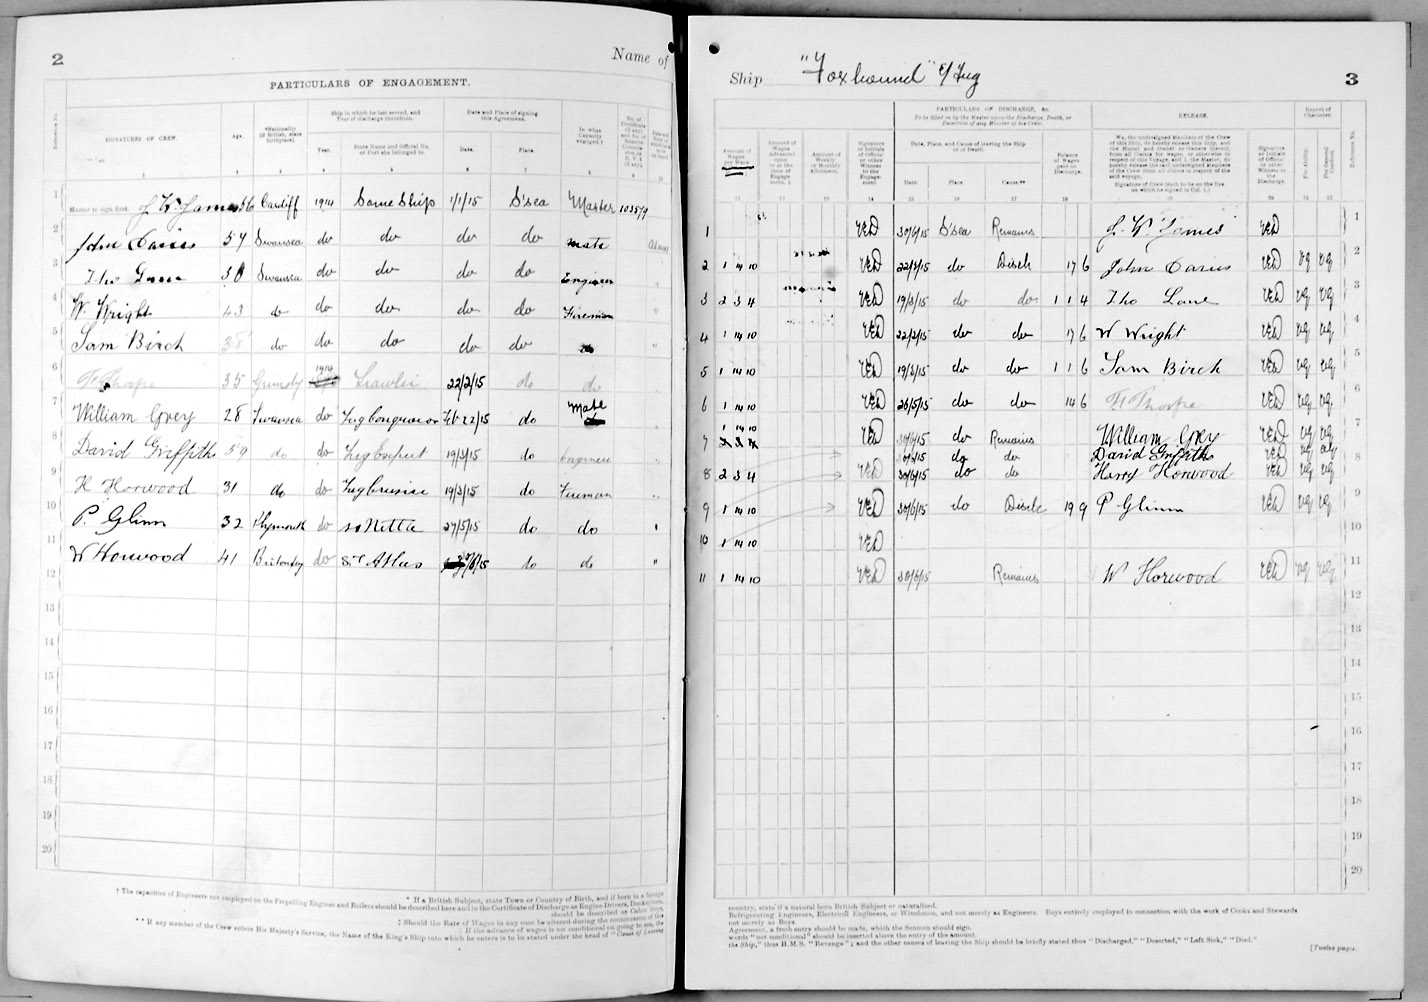 2
Name of
PARTICULARS OF ENGAGEMENT.
Reference No.
SIGNATURES OF CREW.
Age.
*Nationality (If British, state birthplace)
Ship in which he last served, and Year of discharge therefrom.
Year.
State Name and Official No. or Port she belonged to.
Date and Place of signing this Agreement.
Date.
Place.
In what Capacity engaged.†
1 Master to sign first. J. W. James 56 Cardiff 1914 Same Ship 1/1/15 S'sea Master 103579
2 John Davies 57 Swansea do do do do Mate
3 Tho Lane Swansea do do do do Engineer "
4 W. Wright 43 do do do do do Fireman "
5 Sam Birch 38 do do do do do "
6 F. Thorpe 35 Grimsby 1914 Trawler 22/2/15 do do
7 William Grey 28 Swansea do Tug Conqueror Feb 22/15 do Mate
8 David Griffiths 59 do do 19/3/15 do Engineer
9 H Horwood 31 do do 19/3/15 do Fireman
10 P. Glinn 32 Plymouth do 27/5/15 do do "
11 W Horwood 41 do do do "
12
13
14
15
16
17
18
19
20
† The capacities of Engineers not employed on the Propelling Engines and Boilers should be described here and in the Certificate of Discharge as Engine Drivers, Donkeymen,
* If a British Subject, state Town or Country of Birth, and if born in a foreign
should be described as Cabin Boys,
‡ Should the Rate of Wages in any case be altered during the continuance of the
|| If the advance of wages is not conditional on going to sea, the
** If any member of the Crew enters His Majesty's Service, the Name of the King's Ship into which he enters is to be stated under the head of "Cause of Leaving
Ship "Foxhound" s/Tug
3
PARTICULARS OF DISCHARGE, &c.
To be filled in by the Master upon the Discharge, Death, or Desertion of any Member of his Crew.
RELEASE.
Report of Character.
Amount of Wages per Week
Amount of Wages Advanced upon or at the time of Engagement. ‡
Amount of Weekly or Monthly Allotment.
Signature or Initials of Official or other Witness to the Engagement
Date, Place, and Cause of leaving this Ship or of Death.
Date.
Place.
Cause.**
Balance of Wages paid on Discharge.
We, the undersigned Members of the Crew of this Ship, do hereby release this Ship, and the Master and Owner or Owners thereof, from all Claims for wages, or otherwise in respect of this Voyage, and I, the Master, do hereby release the said undersigned Members of the Crew from all claims in respect of the said voyage.
Signature of Crew (each to be on the line on which he signed in Col. 1.)
Signature or Initials of Official or other Witness to the Discharge.
For Ability.
For General Conduct.
Reference No.
1 VED 30/6/15 S'sea Remains J. W. James VED 1
2 1 14 10 VED 22/2/15 do Disch 17 6 John Davies VED VG VG 2
3 2 3 4 VED 19/3/15 do do 1 1 4 Tho Lane VED VG VG 3
4 1 14 10 VED 22/2/15 do do 17 6 W Wright VED VG VG 4
5 1 14 10 VED 19/3/15 do do 1 1 6 Sam Birch VED VG VG 5
6 1 14 10 VED 26/5/15 do do 14 6 F. Thorpe VED VG VG 6
7 1 14 10 VED 30/6/15 do Remains William Grey VED VG VG 7
30/6/15 do do David Griffiths VED VG VG 8
8 2 3 4 VED 30/6/15 do do Harry Horwood VED VG VG
9 1 14 10 VED 30/6/15 do Disch 19 9 P Glinn VED VG VG 9
10 1 14 10 VED 10
11 1 14 10 VED 30/6/15 Remains W Horwood VED VG VG 11
12
13
14
15
16
17
18
19
20
country, state if a natural born British Subject or naturalised.
Refrigerating Engineers, Electrical Engineers, or Winchmen, and not merely as Engineers. Boys entirely employed in connection with the work of Cooks and Stewards
not merely as Boys.
Agreement, a fresh entry should be made, which the Seamen should sign.
words "not conditional" should be inserted above the entry of the amount.
the Ship," thus H.M.S. "Revenge"; and the other causes of leaving the Ship should be briefly stated thus "Discharged," "Deserted," "Left Sick," "Died."
[Twelve pages.